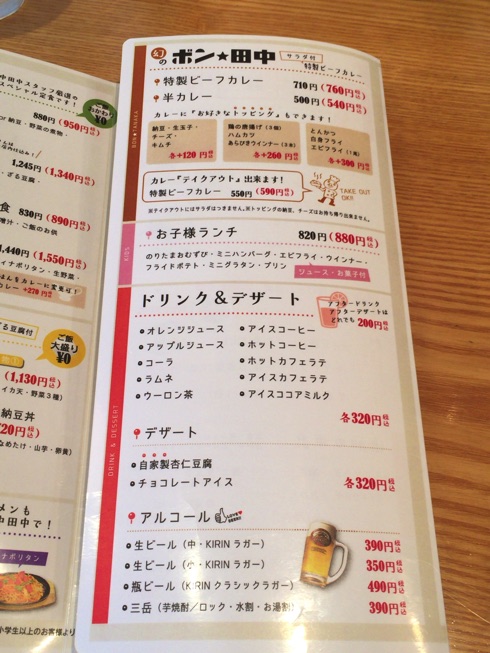 幻の ボン★田中 サラダ付 特製ビーフカレー
特製ビーフカレー 710円(760円税込)
半カレー 500円(540円税込)
カレーに『お好きなトッピング』もできます!
納豆・生玉子・
チーズ・
キムチ
各+120円税込
鶏の唐揚げ(3個)
ハムカツ
あらびきウインナー(3本)
各+260円税込
とんかつ
白身フライ
エビフライ(1尾)
各+300円税込
カレー『テイクアウト』出来ます!
特製ビーフカレー 550円(590円税込)
TAKE OUT
OK!!
※テイクアウトにはサラダはつきません。※トッピングの納豆、チーズはお持ち帰り出来ません。
BON★TANAKA
お子様ランチ 820円(880円税込)
のりたまおむずび・ミニハンバーグ・エビフライ・ウインナー・
フライドポテト・ミニグラタン・プリン
ジュース・お菓子付
KIDS
ドリンク&デザート
アフタードリンク
アフターデザートは
どれでも200円税込
オレンジジュース
アップルジュース
コーラ
ラムネ
ウーロン茶
アイスコーヒー
ホットコーヒー
ホットカフェラテ
アイスカフェラテ
アイスココアミルク
各320円税込
デザート
自家製杏仁豆腐
チョコレートアイス
各320円税込
アルコール
生ビール(中・KIRIN ラガー) 390円税込
生ビール(小・KIRIN ラガー) 350円税込
瓶ビール(KIRIN クラシックラガー) 490円税込
三岳(芋焼酎/ロック・水割・お湯割) 390円税込
DRINK & DESSERT
中田中スタッフ厳選の
スペシャル定食です!
880円(950円税込)
納豆・野菜の煮物・
1,245円(1,340円税込)
・ざる豆腐・
食 830円(890円税込)
噌汁・ご飯のお供
1,440円(1,550円税込)
イナポリタン・生野菜・
はんをカレーに変更可!
カレー +270円税込
ざる豆腐付
ご飯
大盛り
(1,130円税込)
イカ天・野菜3種)
納豆丼
720円税込)
なめたけ・山芋・卵黄)
メンも
中田中で!
ナポリタン
小学生以上のお客様より